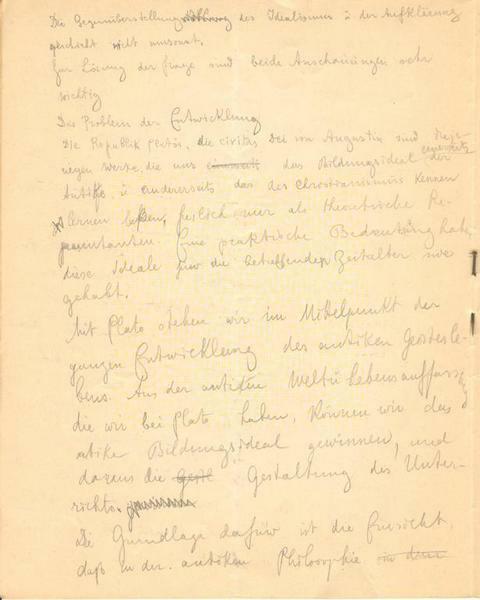 Die Gegenüberstellung des Idealismus u. der Aufklärung
geschieht nicht umsonst.
Zur Lösung der Frage sind beide Anschauungen sehr
wichtig
Das Problem der Entwicklung
Die Republik Platos, die civitas dei von Augustin sind diejenigen
Werke, die uns einerseits das Bildungsideal der
Antike u. andererseits das des Christianismus kennen
lernen lassen, freilich nur als theoretische Re-
präsentanten. Eine praktische Bedeutung haben
diese Ideale für die betreffenden Zeitalter nie
gehabt.
Mit Plato stehen wir im Mittelpunkt der
ganzen Entwicklung des antiken Geistesle-
bens. Aus der antiken Welt u Lebensauffassg
die wir bei Plato haben, können wir das
antike Bildungsideal gewinnen, und
daraus die Gestaltung des Unter-
richts.
Die Grundlage dafür ist die Einsicht,
daß in der antiken Philosophie in dem